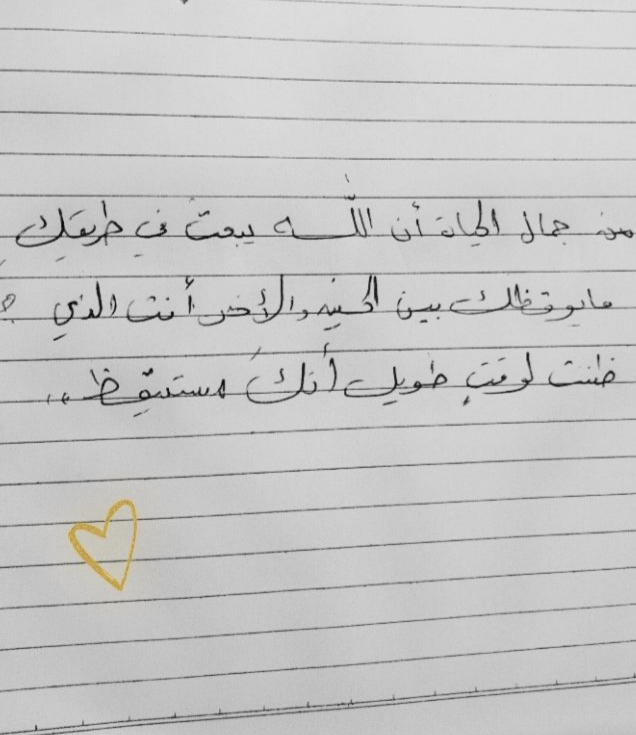 من جمال الحياة أن اللّه يبعث في طريقك
مايوقظك بين الحينِ والأخر أنت الذي
ظننت لوقتٍ طويل أنكَ مستيقِظ ،،